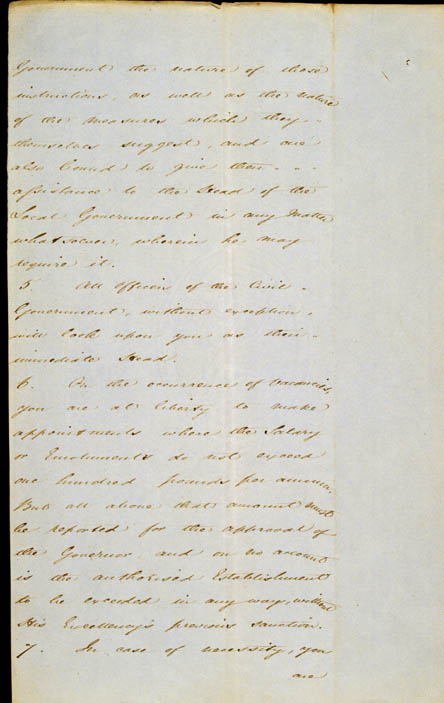 Government the nature of those
instructions, as well as the nature
of the measures which they
themselves suggest, and are
also bound to give their
assistance to the Head of the
Local Government in any matter
whatsoever, wherein he may
require it.
5 All officers of the Civil
Government, without exception,
will look upon you as their
immediate Head.
6. On the occurrence of vacancies,
you are at liberty to make
appointments where the Salary
or Emoluments do not exceed
one hundred pounds per annum.
But all above that amount must
be reported for the approval of
the Governor, and on no account
is the authorised Establishment
to be exceeded in any way, without
His Excellency's previous sanction.
7. In case of necessity, you
are